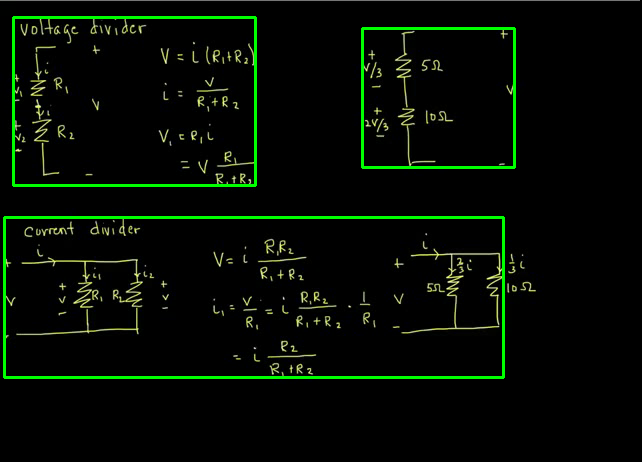 Voltage divider
+
i
+
V₁
-
R₁
i
V
+
V₂
-
R₂
-
V = i (R₁+R₂)
i = V / R₁+R₂
V₁ = R₁ i
= V R₁ / R₁+R₂
+
V/3
-
5Ω
+
2V/3
-
10Ω
+
V
-
Current divider
i
+
V
-
i₁
+
V
-
R₁
i₂
R₂
+
V
-
V = i R₁R₂ / R₁+R₂
i₁ = V / R₁ = i R₁R₂ / R₁+R₂ · 1 / R₁
= i R₂ / R₁+R₂
i
+
V
-
2/3 i
5Ω
1/3 i
10Ω